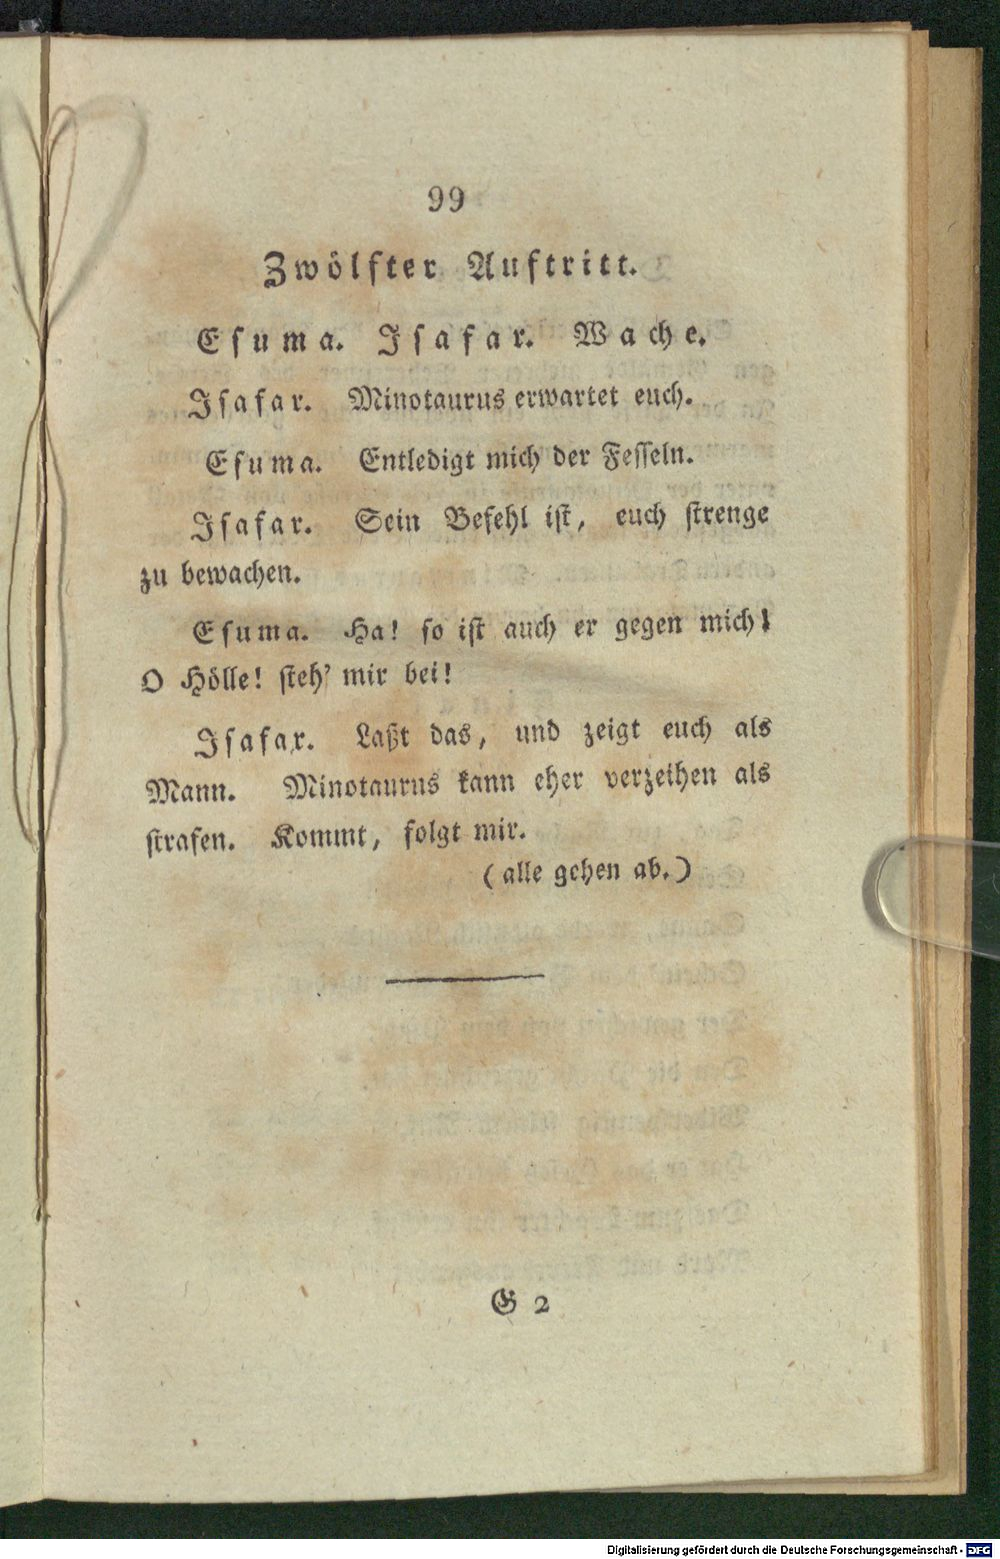 99
Zwölfter Auftritt.
Esuma. Isafar. Wache.
Isafar. Minotaurus erwartet euch.
Esuma. Entledigt mich der Fesseln.
Isafar. Sein Befehl ist, euch strenge
zu bewachen.
Esuma. Ha! so ist auch er gegen mich!
O Hölle! steh' mir bei!
Isafar. Laßt das, und zeigt euch als
Mann. Minotaurus kann eher verzeihen als
strafen. Kommt, folgt mir.
(alle gehen ab.)
G 2
Digitalisierung gefördert durch die Deutsche Forschungsgemeinschaft - DFG